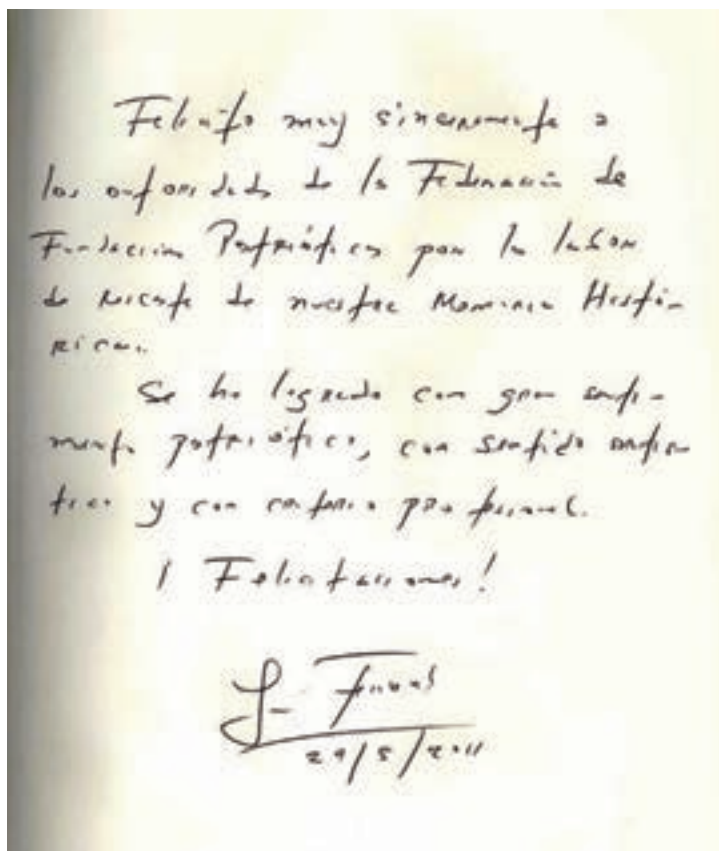 Felicito muy sinceramente a
las autoridades de la Federación de
Fundación Patrióticas por la labor
de rescate de nuestra Memoria Histó-
rica.
Se ha logrado con gran senti-
miento patriótico, con sentido autén-
tico y con criterio profesional.
¡ Felicitaciones!
29/5/2011